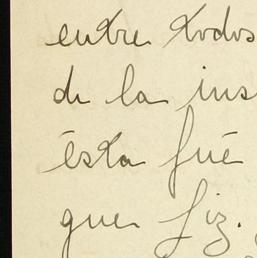 entre todos
de la ins
ésta fué
que fiz.